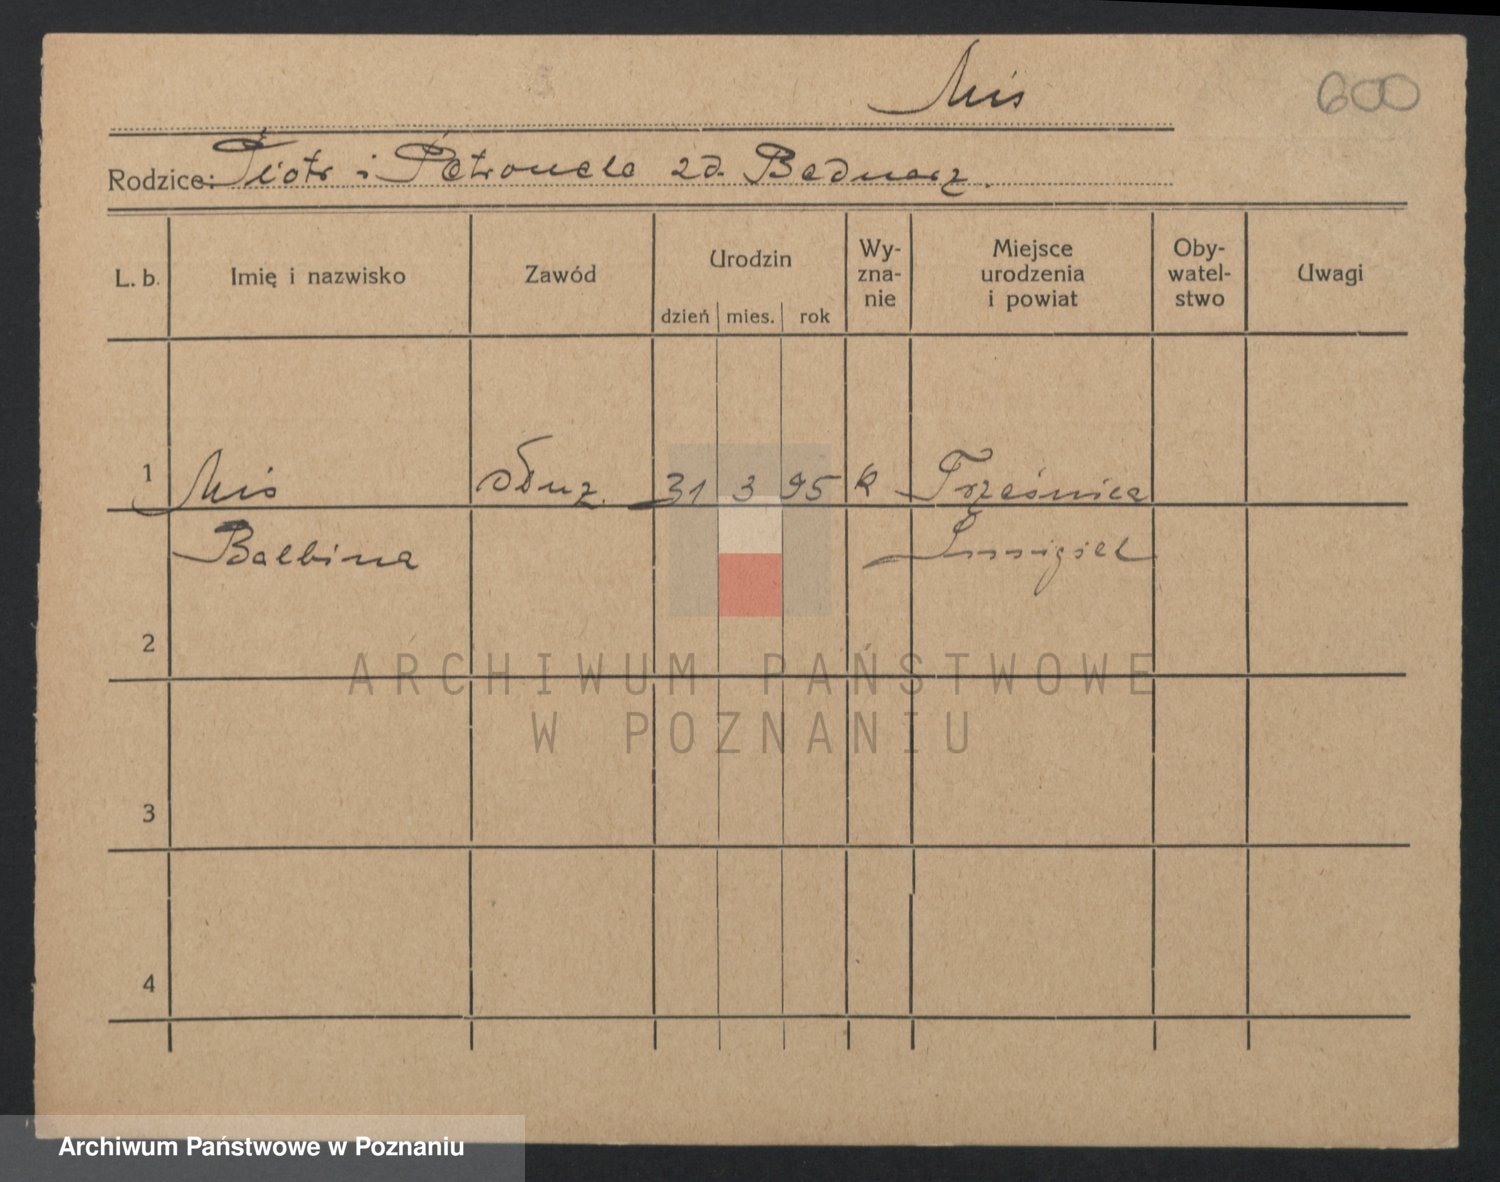 Miś
600
Rodzice: Piotr i Petronela zd. Bednarz.
L. b. Imię i nazwisko Zawód Urodzin Wy- Miejsce Oby- Uwagi
zna- urodzenia watel-
nie i powiat stwo
dzień mies. rok
1 Miś służ. 31 3 95 k Trześnica
Balbina Śmigiel
2
ARCHIWUM PAŃSTWOWE
W POZNANIU
3
4
Archiwum Państwowe w Poznaniu